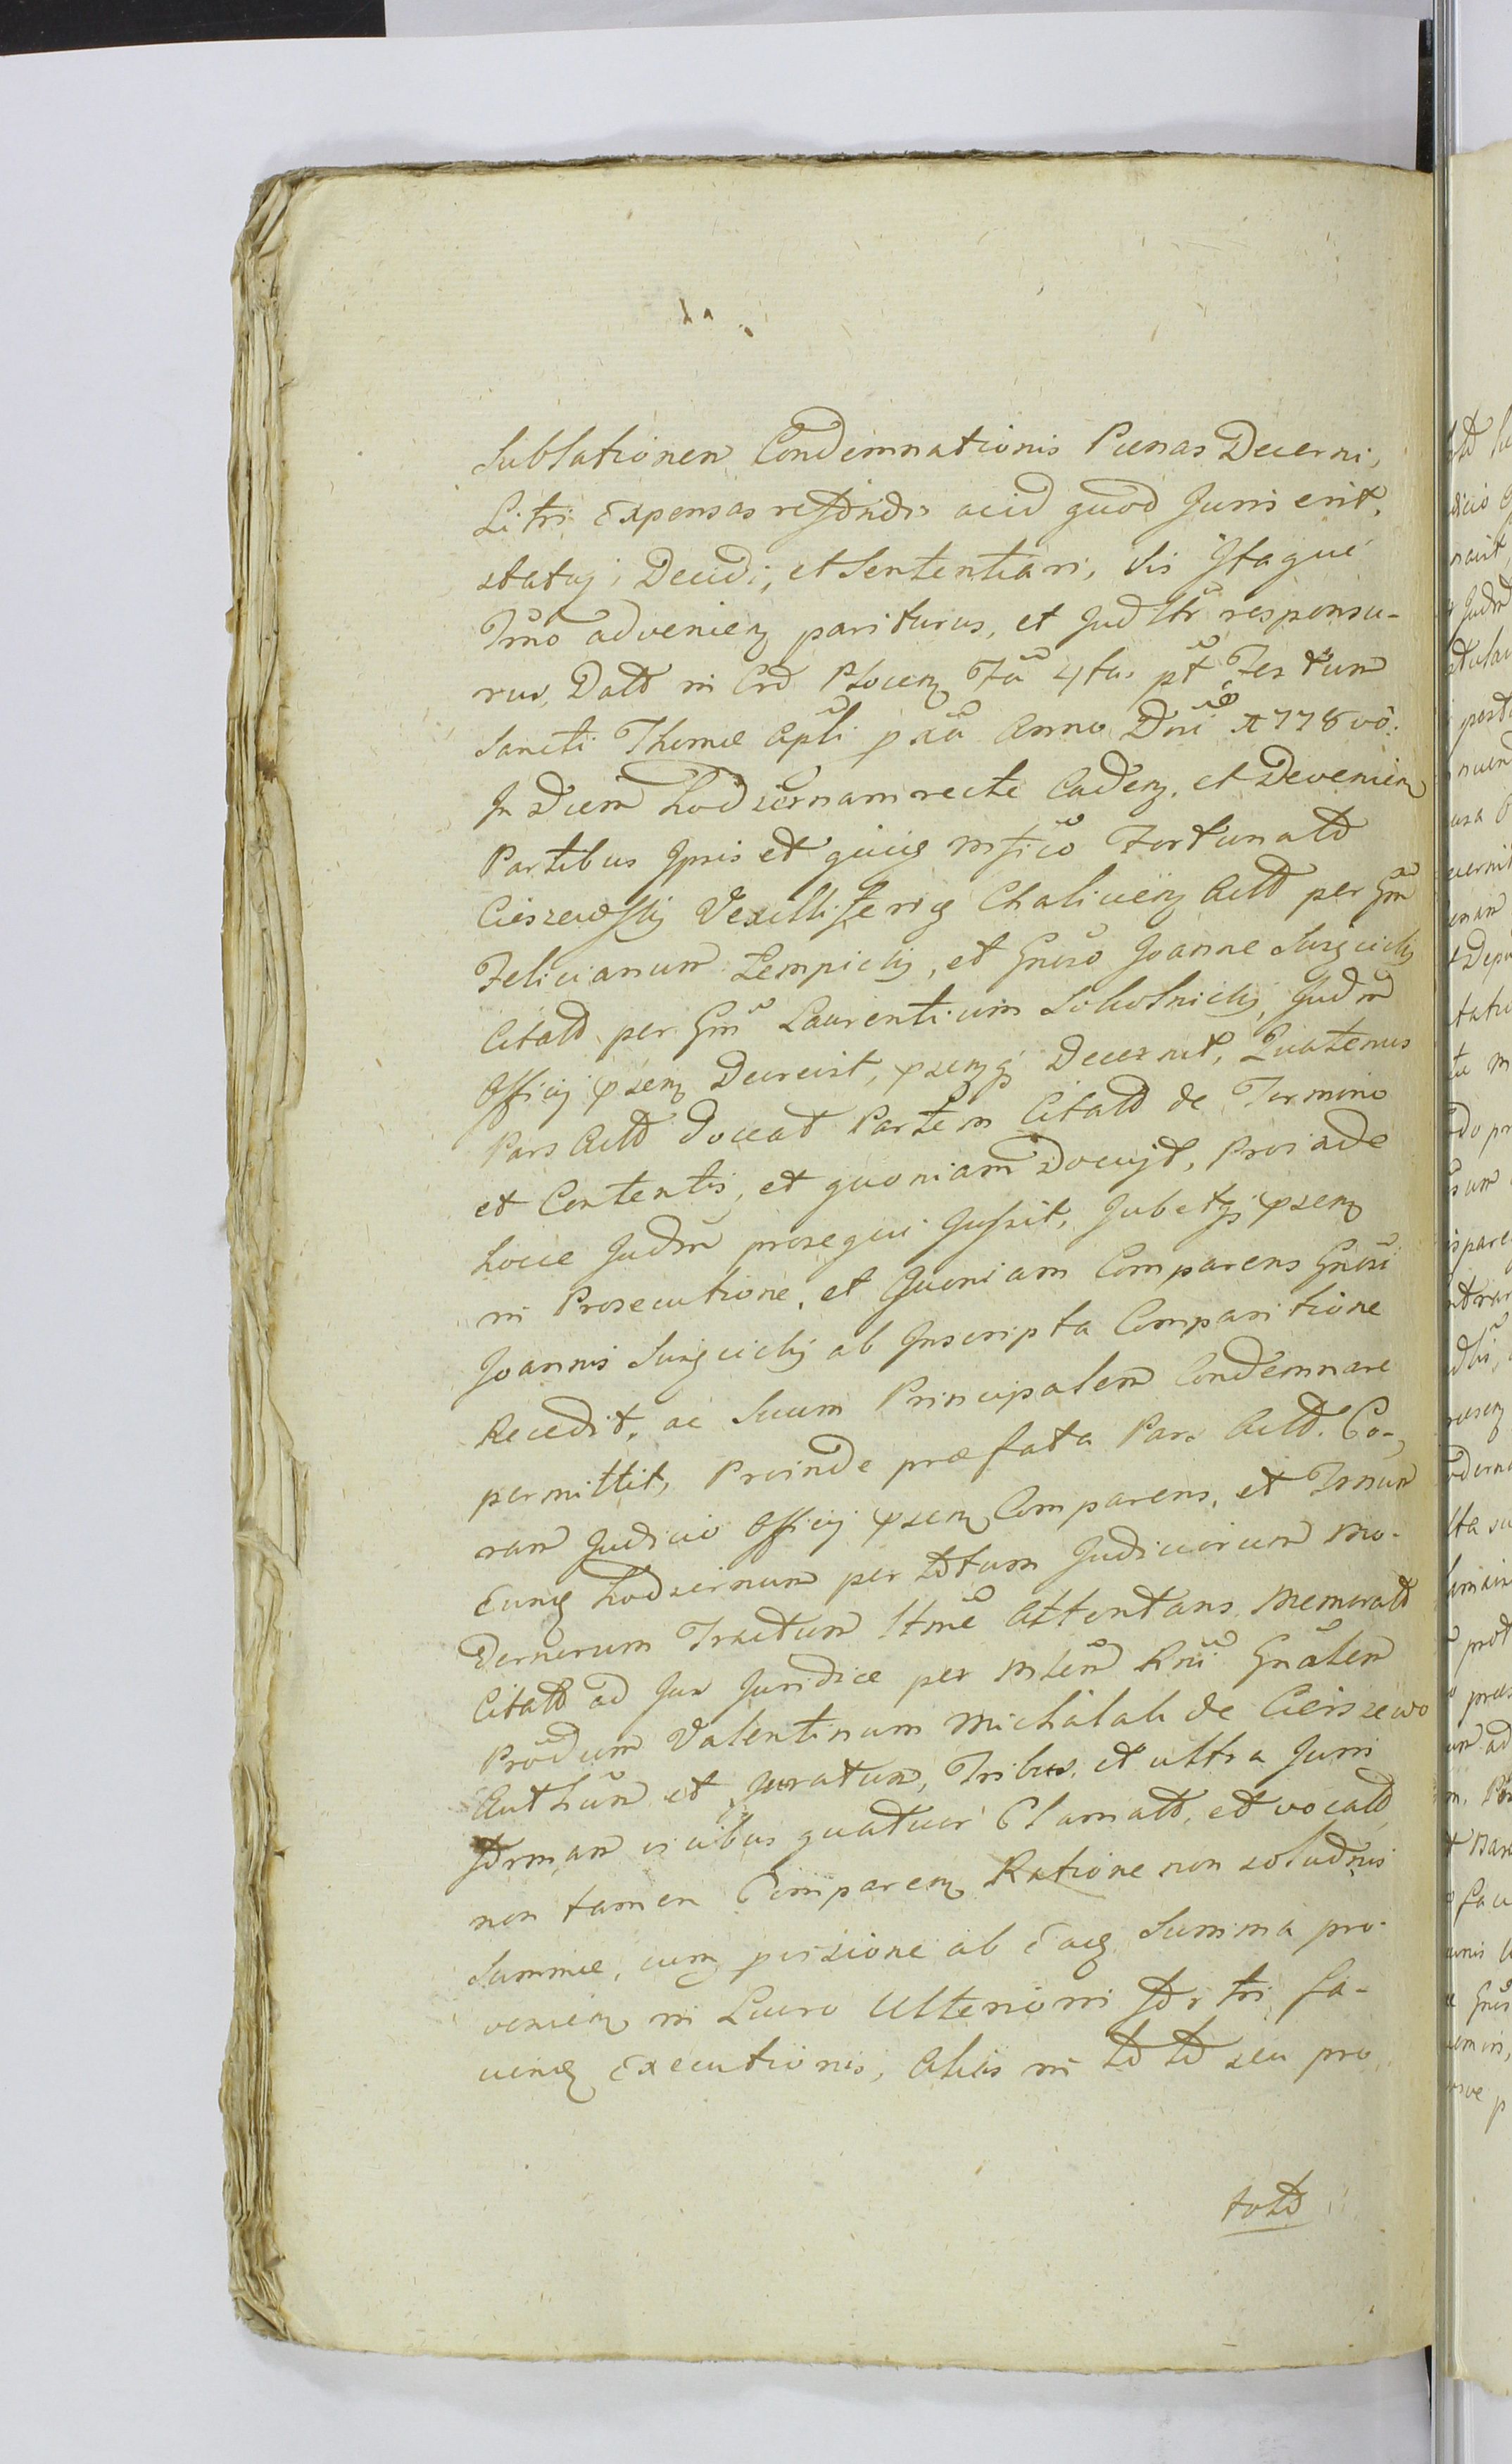 Sublationem Condemnationis Pœnas Decerni,
Litis Expensas refundi acid quod Juris erit,
statuj, Decidi, et Sententiari, sis Itaque
Trno advenien pariturus, et Judltr responsu-
rus, Datt in Crd Plocen Fa 4ta pt Festum
Sancti Thomæ Apli pxa Anno Dni 1778vo.
In Diem hodziernam recte Caden. et Devenien
Partibus Ipsis et quiq Mfico Fortunatt
Cieszewski Vexilliferiq Chalicien Actt per Gm
Felicianum Lempicki, et Gnoso Joanne Surgicki
Citatt per Gm Laurentium Sokolnicki, Judm
Officij psen Decreint, psenq Decernit, Quatenus
Pars Actt doceat Partem Citatt de Termino
et Contentis, et quoniam Docujt, Proinde
hocce Judm prosequi Jussit, Jubetq psen
in Prosecutione, et Quoniam Comparens Gnosi
Joannis Surgicki ab Inscripta Comparitione
Recedit, ac Suum Principalem Condemnare
permittit, Proinde præfata Pars Actt. Co-
ram Judicio Officij psen Comparens, et Trnum
Eunq hodziernum per ttum Judiciorum Mo-
dernorum Tractum ltme Attentans, Memoratt
Citatt ad Jus Juridice per Mlem Rni Gnalem
Produm Valentinum Michalak de Cieszewo
Authum et Juratum, Tribus, et ultra Juris
formam vicibus quatuor Clamatt, et vocatt
non tamen Comparen Ratione non
Summæ, cum provisione ab Eaq Summa pro-
venien in Lucro Ulterioris fortis fa-
cienq Executionis, Aliis in tt tt seu pro
tott